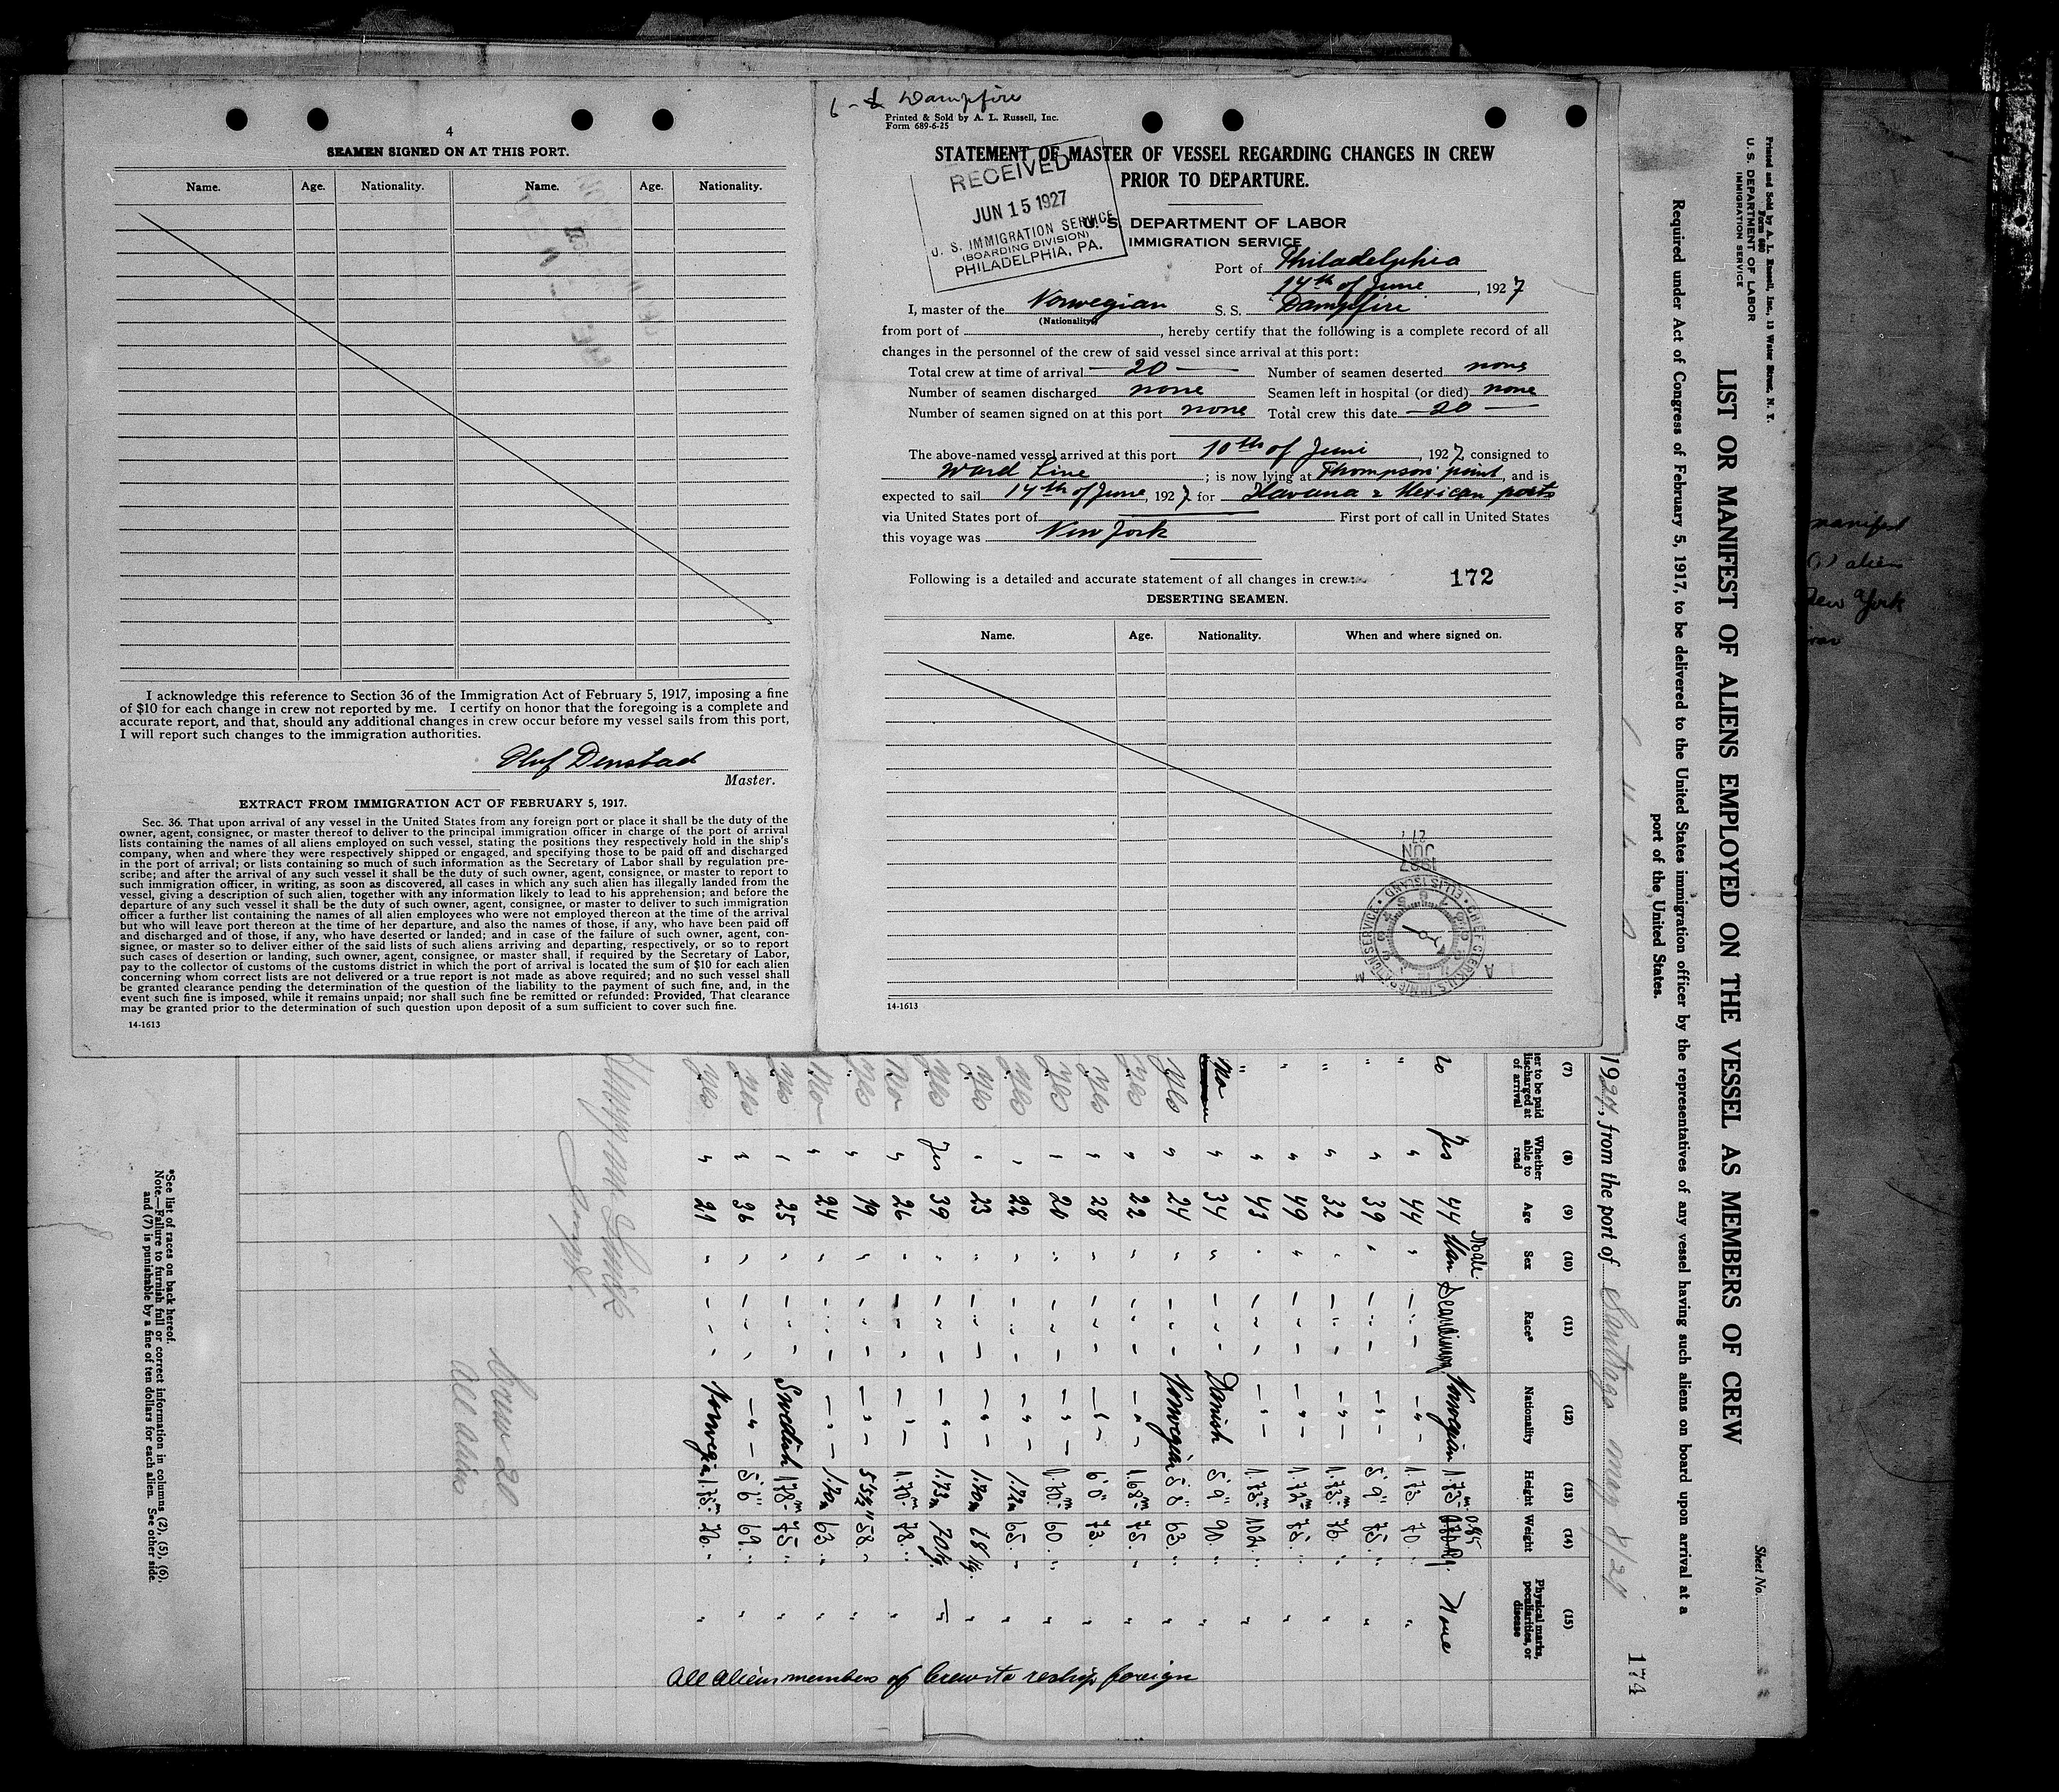 4
SEAMEN SIGNED ON AT THIS PORT.
Name. Age. Nationality. Name. Age. Nationality.
I acknowledge this reference to Section 36 of the Immigration Act of February 5, 1917, imposing a fine
of $10 for each change in crew not reported by me. I certify on honor that the foregoing is a complete and
accurate report, and that, should any additional changes in crew occur before my vessel sails from this port,
I will report such changes to the immigration authorities.
Oluf Denstad
Master.
EXTRACT FROM IMMIGRATION ACT OF FEBRUARY 5, 1917.
Sec. 36. That upon arrival of any vessel in the United States from any foreign port or place it shall be the duty of the
owner, agent, consignee, or master thereof to deliver to the principal immigration officer in charge of the port of arrival
lists containing the names of all aliens employed on such vessel, stating the positions they respectively hold in the ship's
company, when and where they were respectively shipped or engaged, and specifying those to be paid off and discharged
in the port of arrival; or lists containing so much of such information as the Secretary of Labor shall by regulation pre-
scribe; and after the arrival of any such vessel it shall be the duty of such owner, agent, consignee, or master to report to
such immigration officer, in writing, as soon as discovered, all cases in which any such alien has illegally landed from the
vessel, giving a description of such alien, together with any information likely to lead to his apprehension; and before the
departure of any such vessel it shall be the duty of such owner, agent, consignee, or master to deliver to such immigration
officer a further list containing the names of all alien employees who were not employed thereon at the time of the arrival
but who will leave port thereon at the time of her departure, and also the names of those, if any, who have been paid off
and discharged and of those, if any, who have deserted or landed; and in case of the failure of such owner, agent, con-
signee, or master so to deliver either of the said lists of such aliens arriving and departing, respectively, or so to report
such cases of desertion or landing, such owner, agent, consignee, or master shall, if required by the Secretary of Labor,
pay to the collector of customs of the customs district in which the port of arrival is located the sum of $10 for each alien
concerning whom correct lists are not delivered or a true report is not made as above required; and no such vessel shall
be granted clearance pending the determination of the question of the liability to the payment of such fine, and, in the
event such fine is imposed, while it remains unpaid; nor shall such fine be remitted or refunded: Provided, That clearance
may be granted prior to the determination of such question upon deposit of a sum sufficient to cover such fine.
14-1613
Dampfire
Printed & Sold by A. L. Russell, Inc.
Form 689-6-25
STATEMENT OF MASTER OF VESSEL REGARDING CHANGES IN CREW
PRIOR TO DEPARTURE.
RECEIVED
JUN 15 1927
U. S. IMMIGRATION SERVICE
(BOARDING DIVISION)
PHILADELPHIA, PA.
U. S. DEPARTMENT OF LABOR
IMMIGRATION SERVICE
Port of Philadelphia
14th of June, 1927
I, master of the Norwegian S. S. Dampfire
(Nationality)
from port of , hereby certify that the following is a complete record of all
changes in the personnel of the crew of said vessel since arrival at this port:
Total crew at time of arrival 20 Number of seamen deserted none
Number of seamen discharged none Seamen left in hospital (or died) none
Number of seamen signed on at this port none Total crew this date 20
The above-named vessel arrived at this port 10th of Juni, 1927 consigned to
Ward Line ; is now lying at Thompson point, and is
expected to sail 14th of June, 1927 for Havana & Mexican ports
via United States port of First port of call in United States
this voyage was New York
Following is a detailed and accurate statement of all changes in crew:
172
DESERTING SEAMEN.
Name. Age. Nationality. When and where signed on.
JUN
1927
CHIEF CLERK U.S. IMMIGRATION SERVICE ELLIS ISLAND
14-1613
Printed and Sold by A. L. Russell, Inc., 13 Water Street, N. Y.
Form 680
U. S. DEPARTMENT OF LABOR
IMMIGRATION SERVICE
Sheet No.
LIST OR MANIFEST OF ALIENS EMPLOYED ON THE VESSEL AS MEMBERS OF CREW
Required under Act of Congress of February 5, 1917, to be delivered to the United States immigration officer by the representatives of any vessel having such aliens on board upon arrival at a
port of the United States.
1927, from the port of Santiago may 8/27
174
(7) (8) (9) (10) (11) (12) (13) (14) (15)
discharged at of arrival Whether able to read Age Sex Race* Nationality Height Weight Physical marks, peculiarities, or disease
Male
Yes 44 Norwegian 173 None
" 44 " 1.73 70
" 39 " 5'9" 75
" 32 " 1.73 76
" 49 " 1.72m 75
" 43 " 1.73m 102
no " 34 Danish 5'9" 90
yes " 24 Norwegian 5'8" 63
yes " 22 " 1.68m 75
yes " 28 " 6'0" 73
yes " 20 " 1.70m 60
yes " 22 " 1.72m 65
yes " 23 " 1.70m 68½
yes Yes 39 " 1.73m 70½
No " 26 " 1.70 78
yes " 19 " 5'5½" 58
No " 24 " 1.70m 63
yes " 25 Swedish 178m 75
yes " 36 " 5'6" 69
yes " 21 Norwegian 1.75m 76
All aliens members of Crew to reship foreign
Crew 20
All aliens
*See list of races on back hereof.
Note.—Failure to furnish full or correct information in columns (2), (5), (6),
and (7) is punishable by a fine of ten dollars for each alien. See other side.
manifest
alien
New York